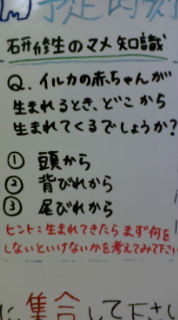 予定時刻
研修生のマメ知識
Q. イルカの赤ちゃんが
生まれるとき、どこから
生まれてくるでしょうか?
① 頭から
② 背びれから
③ 尾びれから
ヒント:生まれてきたらまず何を
しないといけないかを考えてみて下さい
に集合して下さい